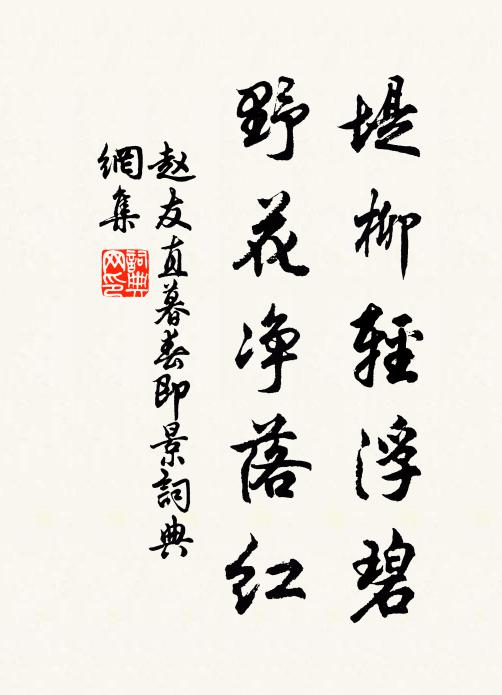 堤柳輕浮碧
野花净落红
赵友直暮春即景詞典
網集
詞典
网印